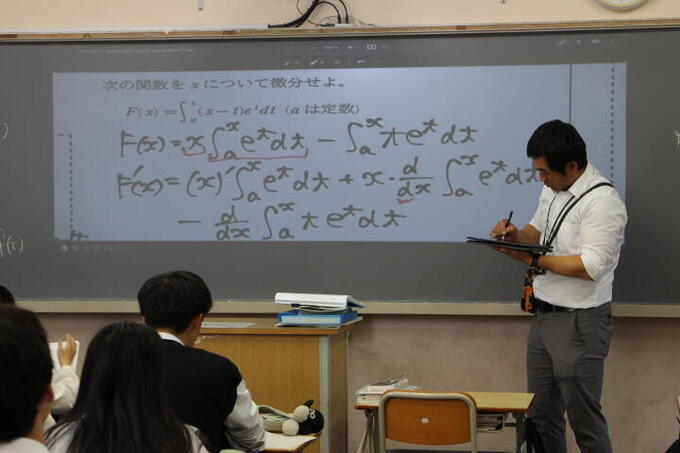 次の関数を x について微分せよ。
F(x) = ∫_a^x (x−t)e^t dt (a は定数)
F(x) = x∫_a^x e^t dt − ∫_a^x t e^t dt
F'(x) = (x)'∫_a^x e^t dt + x・d/dx ∫_a^x e^t dt
− d/dx ∫_a^x t e^t dt